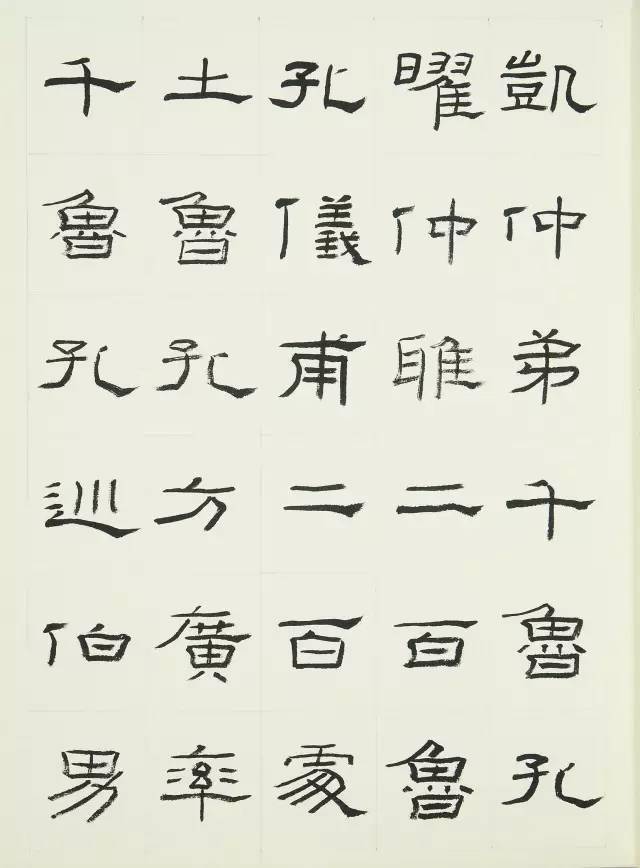 凱仲弟千魯孔
曜仲雅二百魯
孔儀甫二百處
士魯孔方廣率
千魯孔巡伯男